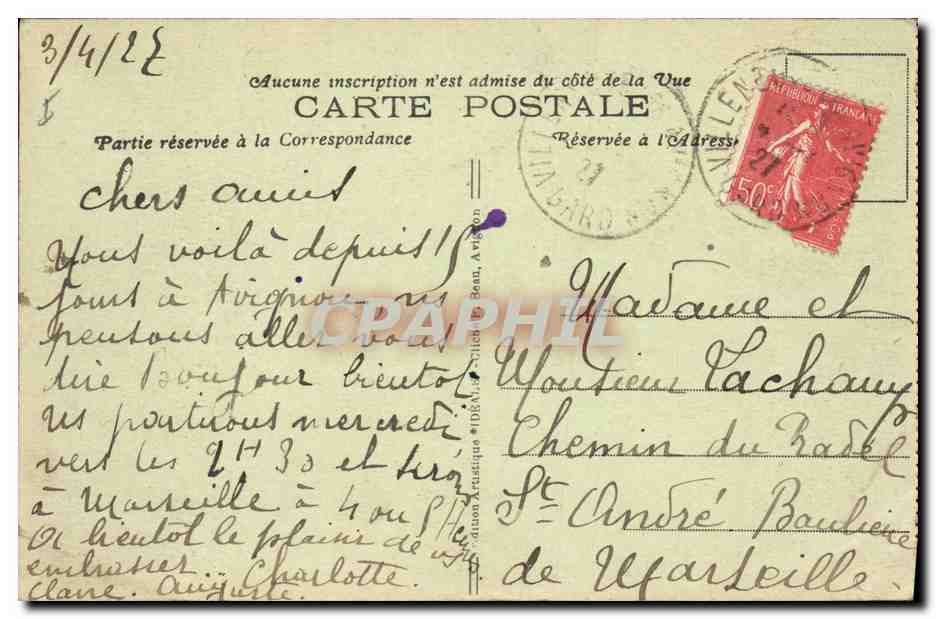 3/4/27
Aucune inscription n'est admise du côté de la Vue
CARTE POSTALE
Partie réservée à la Correspondance
Réservée à l'Adresse
REPUBLIQUE FRANÇAISE
50c
27
27
GARD
chers amis
Nous voilà depuis 15
jours à Avignon ns
pensons aller vous
dire Bonjour bientot
ns partirons mercredi
vers les 2H30 et serons
à Marseille à 4 ou 5 Heures
A bientot le plaisir de vous
embrasser
Claire. Auguste. Charlotte.
Edition Artistique "IDEAL" Cliché Bean, Avignon
Madame et
Monsieur Lachamp
Chemin du Radel
St André Banlieue
de Marseille.
CPAPHIL